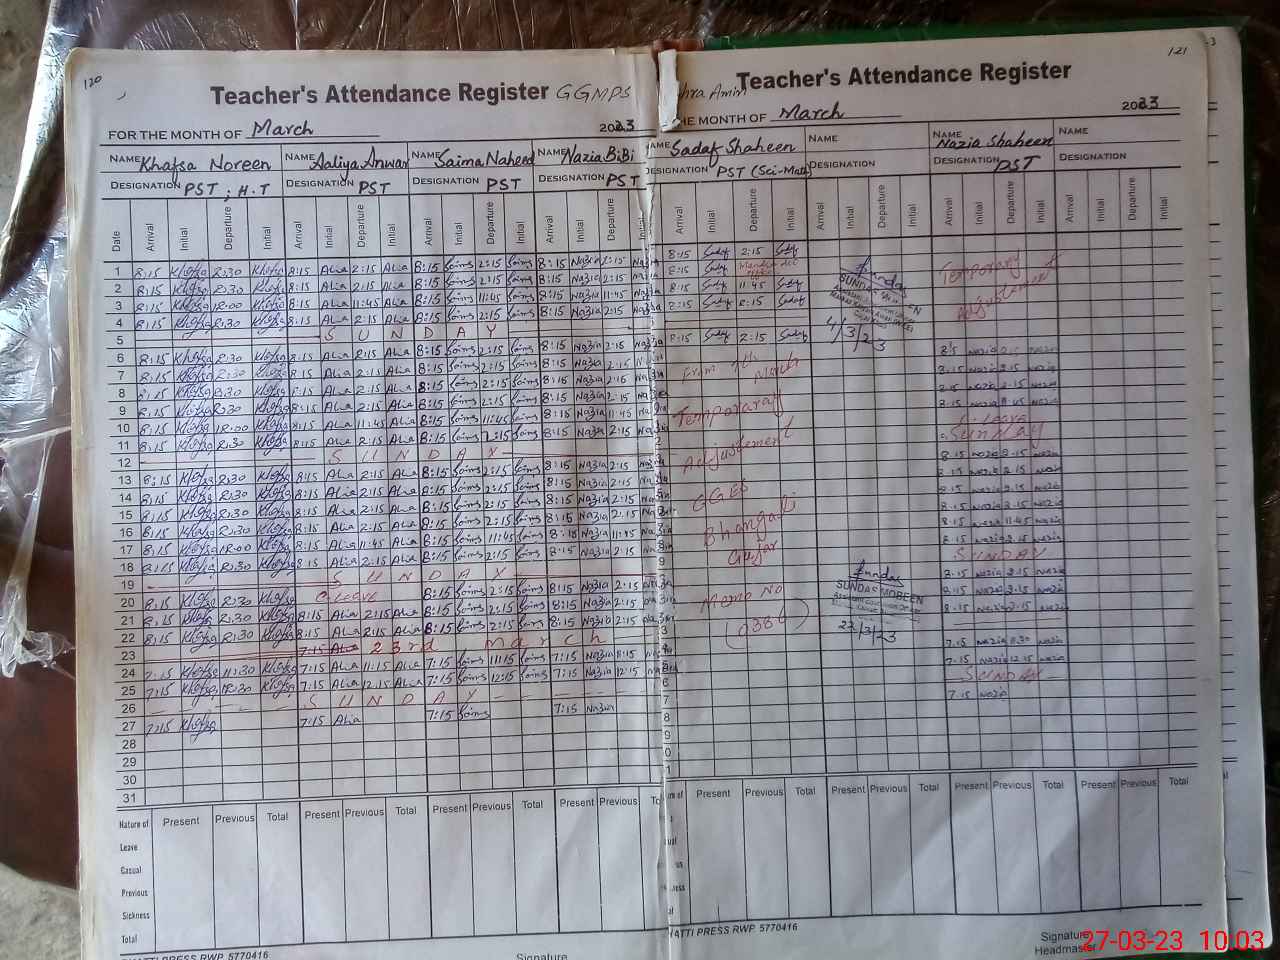 120
Teacher's Attendance Register GGMPS
FOR THE MONTH OF March 2023
NAME Khafsa Noreen NAME Aaliya Anwar NAME Saima Naheed NAME Nazia BiBi
DESIGNATION PST ; H.T DESIGNATION PST DESIGNATION PST DESIGNATION PST
Date Arrival Initial Departure Initial Arrival Initial Departure Initial Arrival Initial Departure Initial Arrival Initial Departure
1 8:15 Khafsa 2:30 Khafsa 8:15 Alia 2:15 Alia 8:15 Saima 2:15 Saima 8:15 Nazia 2:15
2 8:15 Khafsa 2:30 Khafsa 8:15 Alia 2:15 Alia 8:15 Saima 2:15 Saima 8:15 Nazia 2:15
3 8:15 Khafsa 12:00 Khafsa 8:15 Alia 11:45 Alia 8:15 Saima 11:45 Saima 8:15 Nazia 11:45
4 8:15 Khafsa 2:30 Khafsa 8:15 Alia 2:15 Alia 8:15 Saima 2:15 Saima 8:15 Nazia 2:15
5 SUNDAY
6 8:15 Khafsa 2:30 Khafsa 8:15 Alia 2:15 Alia 8:15 Saima 2:15 Saima 8:15 Nazia 2:15
7 8:15 Khafsa 2:30 Khafsa 8:15 Alia 2:15 Alia 8:15 Saima 2:15 Saima 8:15 Nazia 2:15
8 8:15 Khafsa 2:30 Khafsa 8:15 Alia 2:15 Alia 8:15 Saima 2:15 Saima 8:15 Nazia 2:15
9 8:15 Khafsa 2:30 Khafsa 8:15 Alia 2:15 Alia 8:15 Saima 2:15 Saima 8:15 Nazia 2:15
10 8:15 Khafsa 12:00 Khafsa 8:15 Alia 11:45 Alia 8:15 Saima 11:45 Saima 8:15 Nazia 11:45
11 8:15 Khafsa 2:30 Khafsa 8:15 Alia 2:15 Alia 8:15 Saima 2:15 Saima 8:15 Nazia 2:15
12 SUNDAY
13 8:15 Khafsa 2:30 Khafsa 8:15 Alia 2:15 Alia 8:15 Saima 2:15 Saima 8:15 Nazia 2:15
14 8:15 Khafsa 2:30 Khafsa 8:15 Alia 2:15 Alia 8:15 Saima 2:15 Saima 8:15 Nazia 2:15
15 8:15 Khafsa 2:30 Khafsa 8:15 Alia 2:15 Alia 8:15 Saima 2:15 Saima 8:15 Nazia 2:15
16 8:15 Khafsa 2:30 Khafsa 8:15 Alia 2:15 Alia 8:15 Saima 2:15 Saima 8:15 Nazia 2:15
17 8:15 Khafsa 12:00 Khafsa 8:15 Alia 11:45 Alia 8:15 Saima 11:45 Saima 8:15 Nazia 11:45
18 8:15 Khafsa 2:30 Khafsa 8:15 Alia 2:15 Alia 8:15 Saima 2:15 Saima 8:15 Nazia 2:15
19 SUNDAY
20 8:15 Khafsa 2:30 Khafsa C Leave 8:15 Saima 2:15 Saima 8:15 Nazia 2:15
21 8:15 Khafsa 2:30 Khafsa 8:15 Alia 2:15 Alia 8:15 Saima 2:15 Saima 8:15 Nazia 2:15
22 8:15 Khafsa 2:30 Khafsa 8:15 Alia 2:15 Alia 8:15 Saima 2:15 Saima 8:15 Nazia 2:15
23 7:15 Alia 23rd March
24 7:15 Khafsa 11:30 Khafsa 7:15 Alia 11:15 Alia 7:15 Saima 11:15 Saima 7:15 Nazia 11:15
25 7:15 Khafsa 12:30 Khafsa 7:15 Alia 12:15 Alia 7:15 Saima 12:15 Saima 7:15 Nazia 12:15
26 SUNDAY
27 7:15 Khafsa 7:15 Alia 7:15 Saima 7:15 Nazia
28
29
30
31
Nature of Present Previous Total Present Previous Total Present Previous Total Present Previous
Leave
Casual
Previous
Sickness
Total
HATTI PRESS RWP 5770416 Signature
121
Teacher's Attendance Register
hra Amin
HE MONTH OF March 2023
NAME Sadaf Shaheen NAME NAME Nazia Shaheen NAME
DESIGNATION PST (Sci-Math) DESIGNATION DESIGNATION PST DESIGNATION
Arrival Initial Departure Initial Arrival Initial Departure Initial Arrival Initial Departure Initial Arrival Initial Departure Initial
8:15 Sadaf 2:15 Sadaf
8:15 Sadaf
8:15 Sadaf 11:45 Sadaf
8:15 Sadaf 2:15 Sadaf
8:15 Sadaf 2:15 Sadaf
From 7th March
Temporary
Adjustment
GGES
Bhangali
Gujar
Memo No
SUNDAS MOBEEN
4/3/23
SUNDAS MOBEEN
22/3/23
Temporary
Adjustment
8:15 Nazia 2:15 Nazia
8:15 Nazia 2:15 Nazia
8:15 Nazia 2:15 Nazia
8:15 Nazia 11:45 Nazia
Leave
SUNDAY
8:15 Nazia 2:15 Nazia
8:15 Nazia 2:15 Nazia
8:15 Nazia 2:15 Nazia
8:15 Nazia 2:15 Nazia
8:15 Nazia 11:45 Nazia
8:15 Nazia 2:15 Nazia
SUNDAY
8:15 Nazia 2:15 Nazia
8:15 Nazia 2:15 Nazia
8:15 Nazia 2:15 Nazia
7:15 Nazia 11:30 Nazia
7:15 Nazia 12:15 Nazia
SUNDAY
7:15 Nazia
Present Previous Total Present Previous Total Present Previous Total Present Previous Total
HATTI PRESS RWP 5770416
Signature
Headmaster
27-03-23 10:03